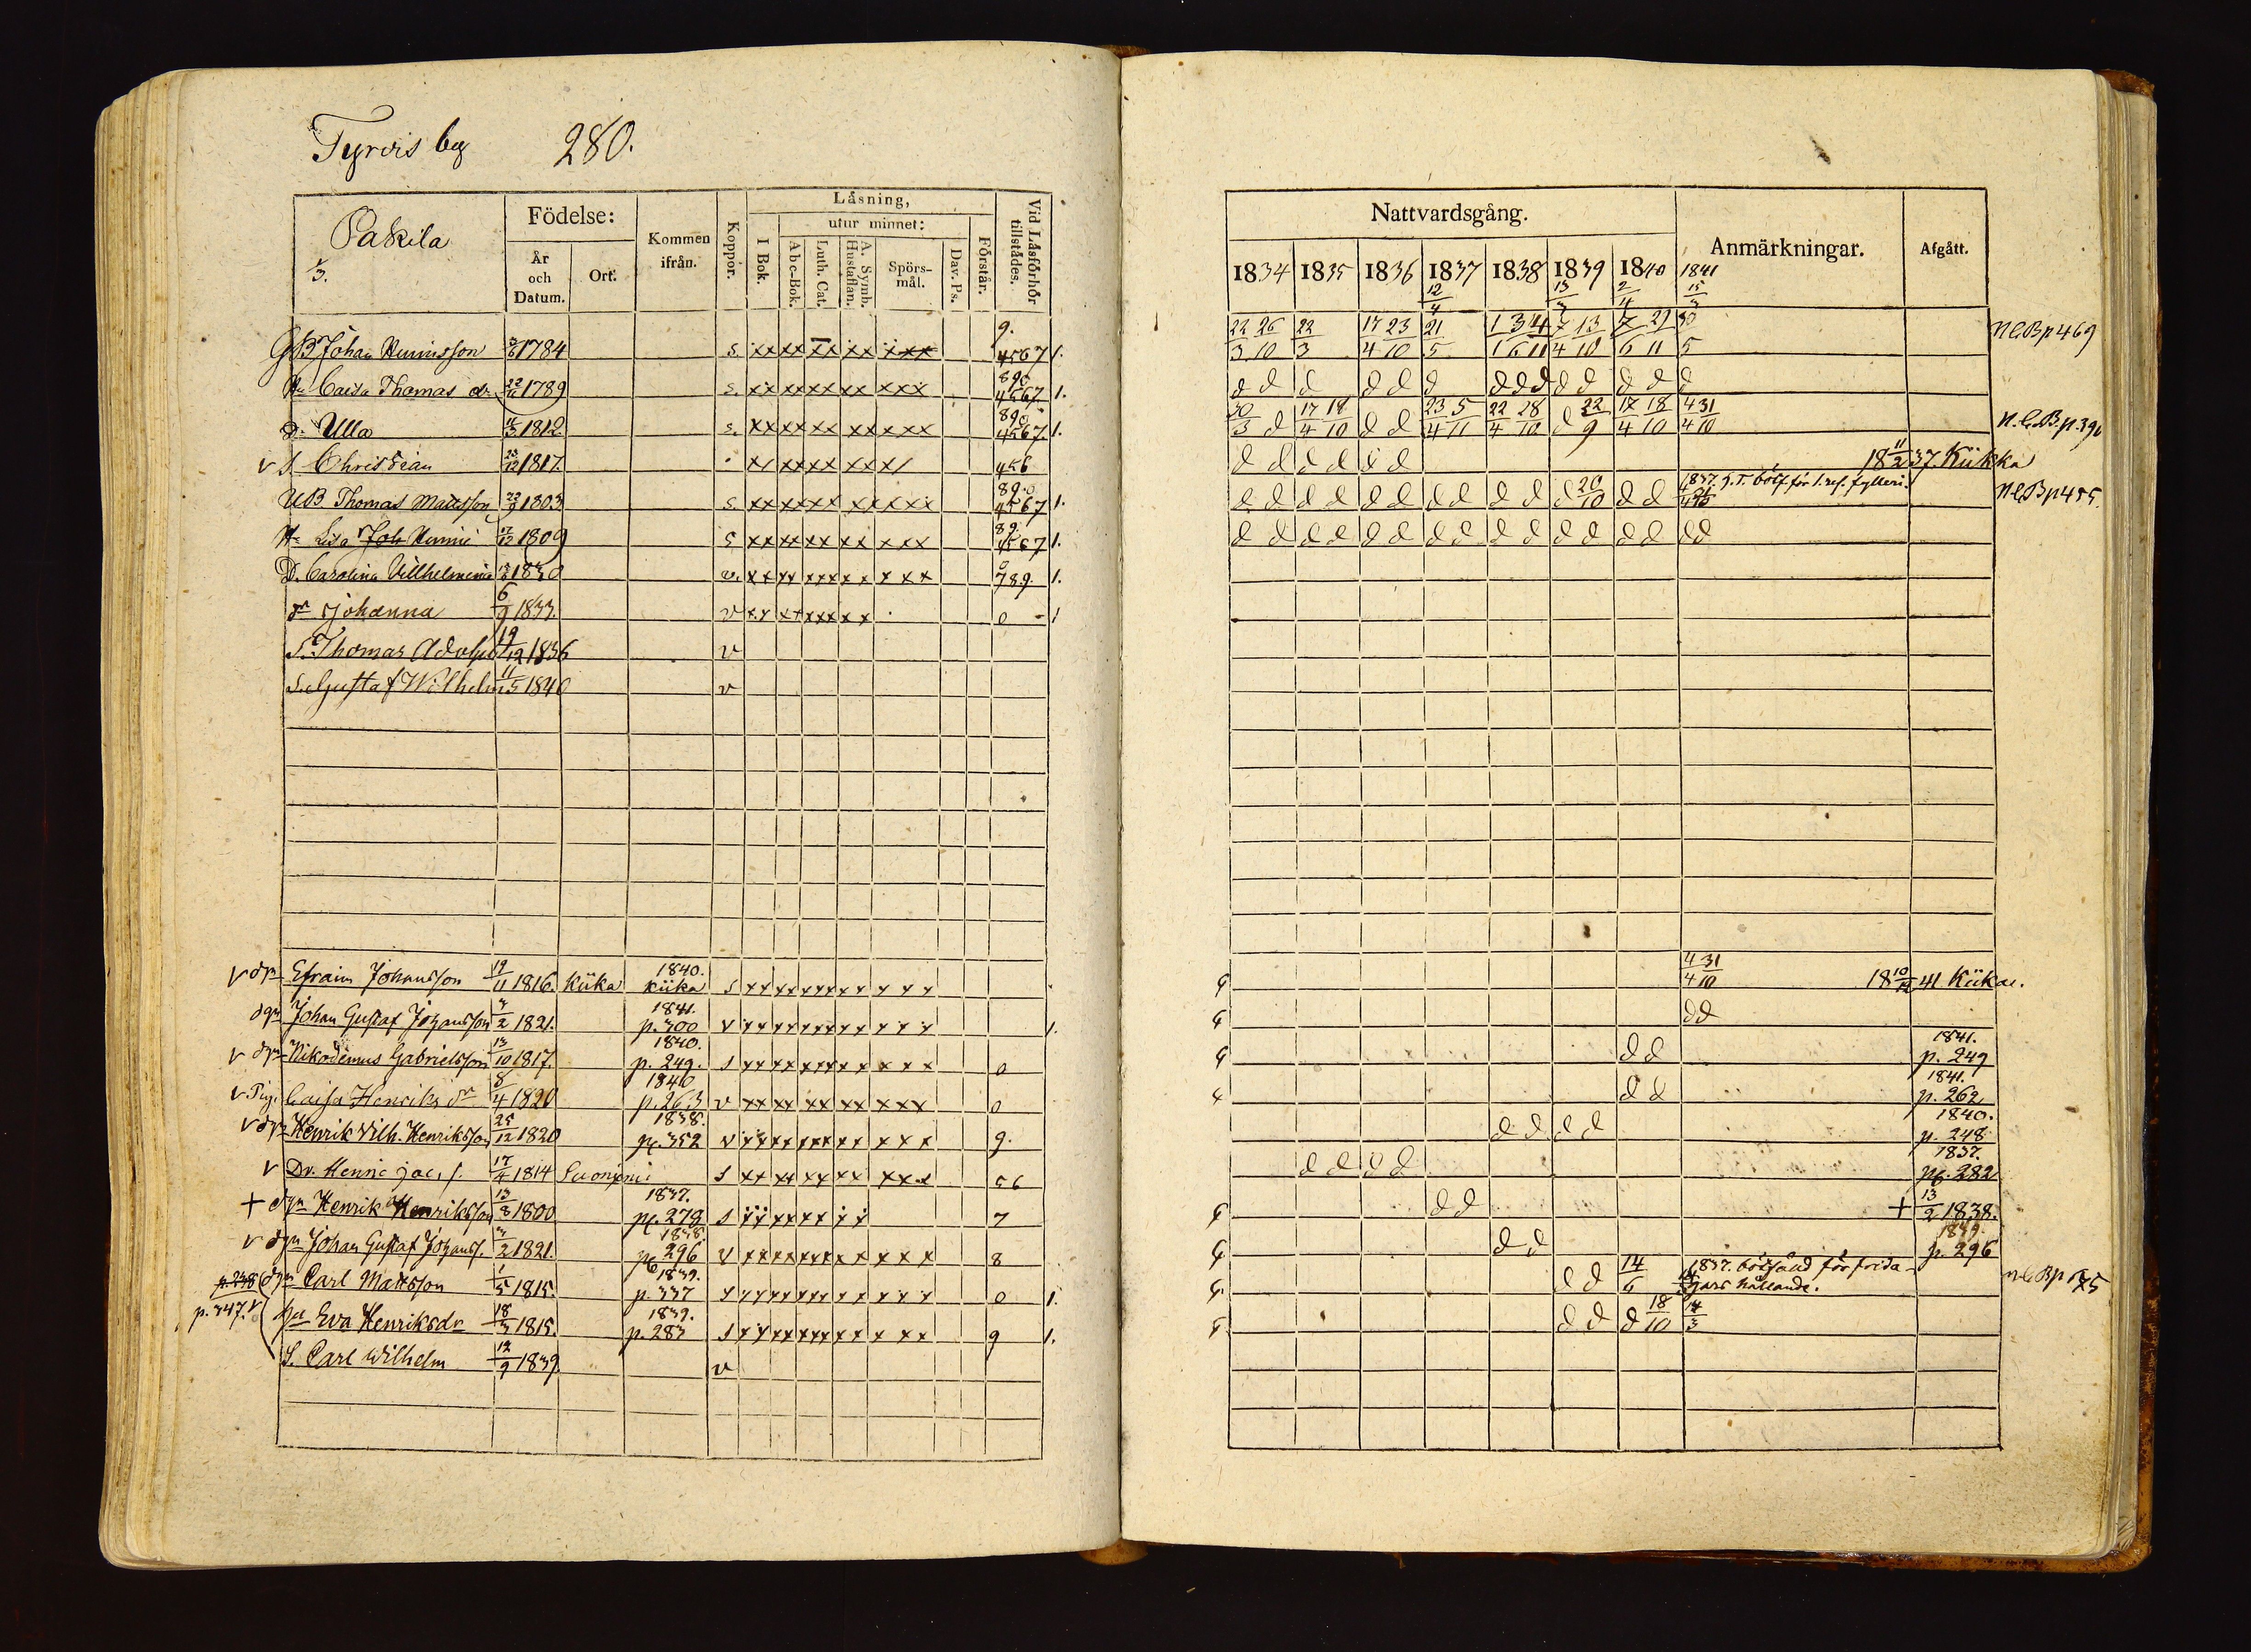 Tyrvis by 280.
Pakila
1/3.
Födelse:
År och Datum.
Ort.
Kommen ifrån.
Koppor.
Låsning,
I Bok.
utur minnet:
Abc-Bok.
Luth. Cat.
A. Symb. Hustaflan.
Spörs-mål.
Dav. Ps.
Förstår.
Vid Låsförhör tillstådes.
Nattvardsgång.
1834 1835 1836 1837 1838 1839 1840 1841
12/4 13/3 2/4 15/3
Anmärkningar.
Afgått.
Johan 1784 s. xx xx xx xx xxx 9. 4567 1. 22/3 26/10 22/3 17/4 23/10 21/5 7/4 13/10 NCBp469
Caisa Thomas dr 1789 s. xx xx xx xx xxx 890 4567. 1. d d d d d d d d d d d d d d
Ulla 1812 s. xx xx xx xx xxx 890 4567. 1. 30/3 d 17/4 18/10 d d 23/4 5/11 22/4 28/10 d 22/9 17/4 18/10 4/4 31/10 N.C.B.p.396
v S. Christian 1817. 456 d d d d d d 18 11/2 37. Kükka
UB Thomas Mattsson 1803 s. xx xx xx xx xxx 890 4567 1. d d d d d d d d d d d 20/10 d d 1837. NCBp455.
Hu Lisa Joh 1809 s xx xx xx xx xxx 89. 4567 1. d d d d d d d d d d d d d d d d
D. Carolina Villhelmina 1830 v. xx xx xxx xx xxx 0 789. 1.
dr Johanna 6/9 1833. v xx xx xxx xx 0 - 1
S. Thomas Adolph 19/12 1836 v
S. Gustaf Wilhelm 11/5 1840 v
v dgr Efraim Johansson 19/11 1816. Küka 1840. Küka s xx xx xxx xx xxx 4/4 31/10 18 10/12 41 Kükae.
dgr Johan Gustaf Johansson 3/2 1821. 1841. p.300 v xx xx xxx xx xxx 1. dd
v dgr Nikodemus Gabrielsson 13/10 1817. 1840. p. 249. s xx xx xxx xx xxx 0 d d 1841. p. 249
v Pig. Caisa Henriks dr 8/4 1820 1840 p. 263 v xx xx xx xx xxx 0 d d 1841. p. 262
v dgr Henrik Wilh. Henriksson 25/12 1820 1838. p. 352 v xx xx xxx xx xxx 9. d d d d 1840. p. 248
v Dr. Henric Jac. s. 17/4 1814 s xx xx xx xx xxx 56 d d d d 1837. p. 282
+ dgr Henrik Henriksson 13/8 1800 1837. p. 278 s xx xx xx xx 7 d d + 13/2 1838.
v dgr Johan Gustaf Johanss. 3/2 1821. 1838. p. 296 v xx xx xxx xx xxx 8 d d 1839. p. 296
p.238 dgr Carl Mattsson 1/5 1815. 1839. p. 337 s xx xx xxx xx xxx 0 1. d d 14/6 1837.
p.347. v hu Eva Henriksdr 18/3 1815. 1839. p. 283 s xx xx xxx xx xxx 9 1. d d d 18/10 14/3
S. Carl Wilhelm 12/9 1839. v